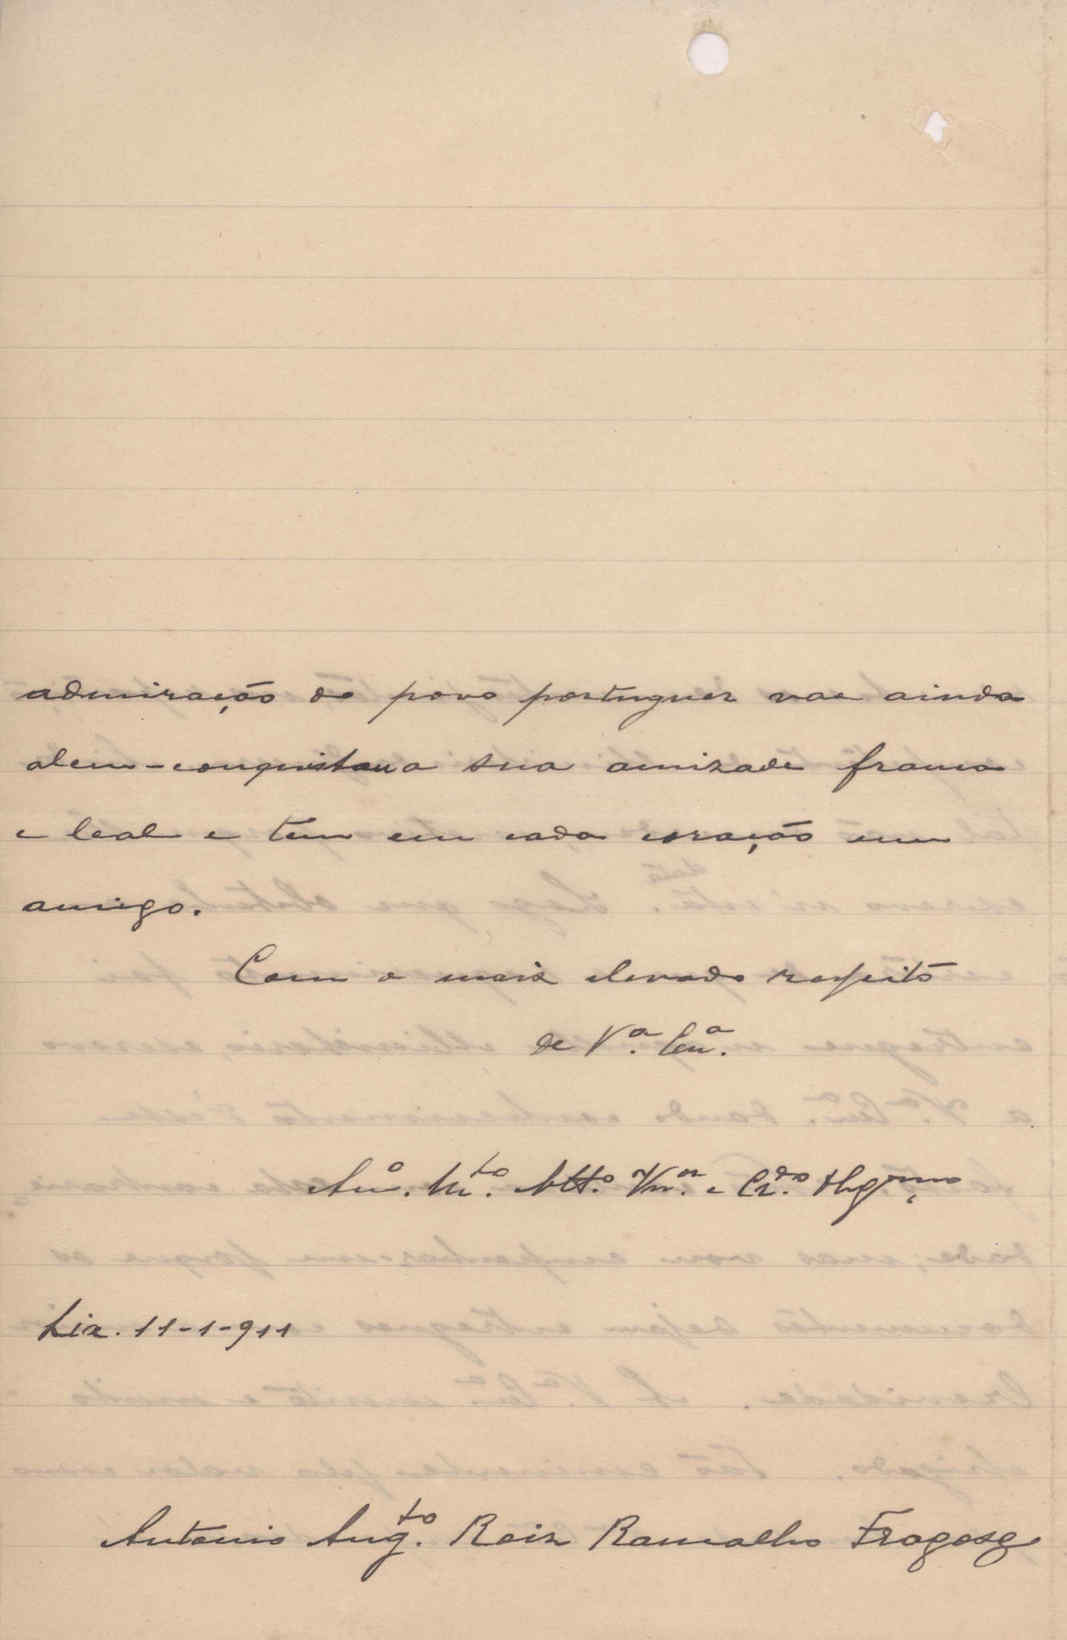 admiração do povo portuguez vae ainda
alem-conquistou a sua amizade franca
e leal e tem em cada coração um
amigo.
Com o mais elevado respeito
de V.ª Ex.ª
Am.º M.to Att.º Vn.or e Cr.do Obg.mo
Lix. 11-1-911
Antonio Aug.to Roiz Ramalho Fragoso